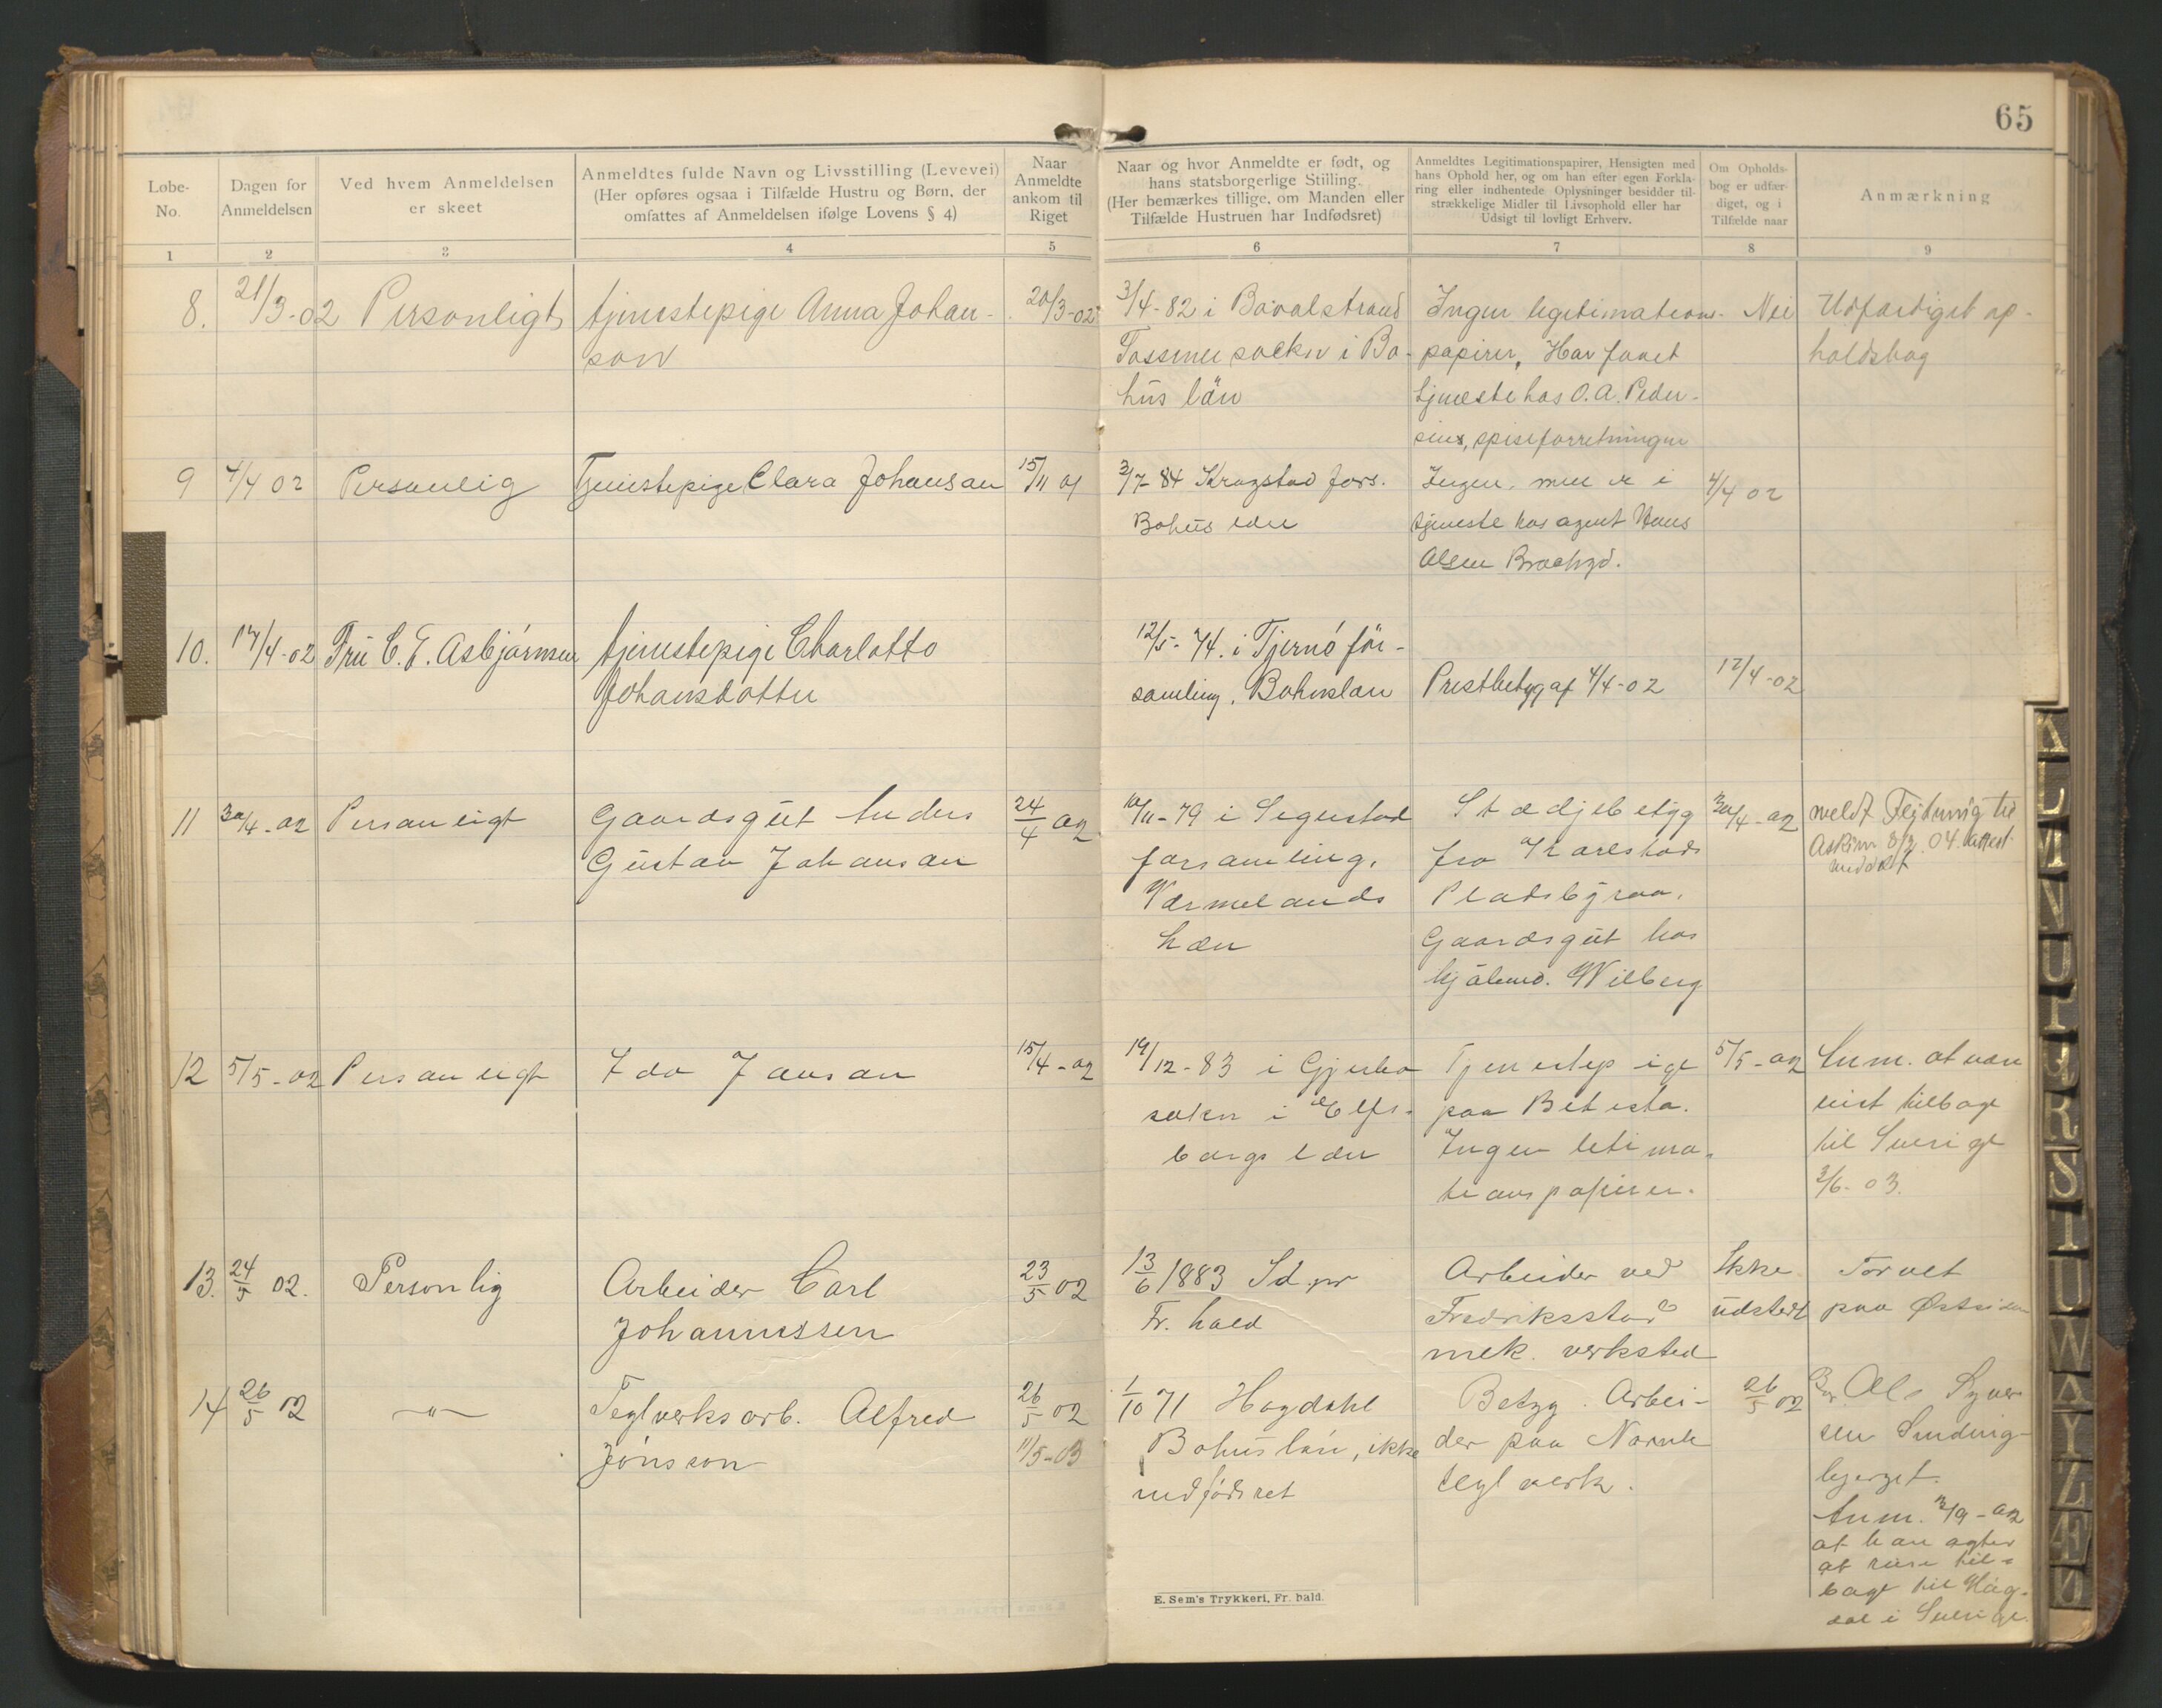 65
Løbe-
No.
Dagen for
Anmeldelsen
Ved hvem Anmeldelsen
er skeet
Anmeldtes fulde Navn og Livsstilling (Levevei)
(Her opføres ogsaa i Tilfælde Hustru og Børn, der
omfattes af Anmeldelsen ifølge Lovens § 4)
Naar
Anmeldte
ankom til
Riget
Naar og hvor Anmeldte er født, og
hans statsborgerlige Stilling.
(Her bemærkes tillige, om Manden eller
Tilfælde Hustruen har Indfødsret)
Anmeldtes Legitimationspapirer, Hensigten med
hans Ophold her, og om han efter egen Forkla-
ring eller indhentede Oplysninger besidder til-
strækkelige Midler til Livsophold eller har
Udsigt til lovligt Erhverv.
Om Opholds-
bog er udfær-
diget, og i
Tilfælde naar
Anmærkning
1 2 3 4 5 6 7 8 9
8. 21/3-02 Personligt tjenestepige Anna Johan-
son
20/3-02
3/4-82 i Bovalstrand
Tossene sockn i Bo-
hus län
Ingen legitimations-
papirer, Har faaet
tjeneste hos O.A. Peder-
sens, spiseforretningen
Nei
Udfærdiget op-
holdsbog
9 4/4 02 Personlig Tjenestepige Clara Johansan 15/11 01
3/7-84 Krogstad fors.
Bohus län
Ingen, men er i
tjeneste hos agent Hans
Olsen Brochgd.
4/4 02
10. 17/4-02 Frü C. E. Asbjørnsen tjenestepige Charlotto
Johansdotter
12/5-74. i Tjernö för-
samling, Bohuslän
Prestbetyg af 4/4-02
17/4-02
11 30/4-02 Personligt Gaardsgüt Anders
Güstav Johansan
24/4 02
10/11-79 i Segerstad
forsamling,
Värmelands
Læn
Städjebetyg
fra Karlstads
Pladsbyraa.
Gaardsgüt hos
kjøbmd. Wilberg
30/4-02
meldt Flytning til
Askim 8/3 04. Attest
meddelt
12 5/5-02 Personligt Ida Jansan 15/4-02
19/12-83 i Gjerbo
sokn i Elfs-
borgs län
Tjenestepige
paa Betesta.
Ingen letima-
tionspapirer.
5/5-02
Anm. at være
reist tilbage
til Sverige
3/6-03.
13. 24/5 02. Personlig Arbeider Carl
Johannessen
23/5 02
13/6 1883 Id pr
Fr. hald
Arbeider ved
Fredriksstad
mek. verksted
Ikke
üdstedt
Torvet
paa Østsiden
14 26/5 02 —"— Teglverksarb. Alfred
Jönsson
26/5 02
11/5-03
1/10 71 Hogdahl
Bohus län, ikke
indfødsret
Betyg. Arbei-
der paa Narnte
teglverk.
26/5 02
Bor Ols Syver
sen Smding-
bjerget.
Anm. /9-02
at han agter
at reise til-
bage til Hog-
dal i Sverige.
E. Sem's Trykkeri, Fr. hald.
A
L
M
N
O
P
R
S
T
U
W
A
Y
Z
Æ
Ø